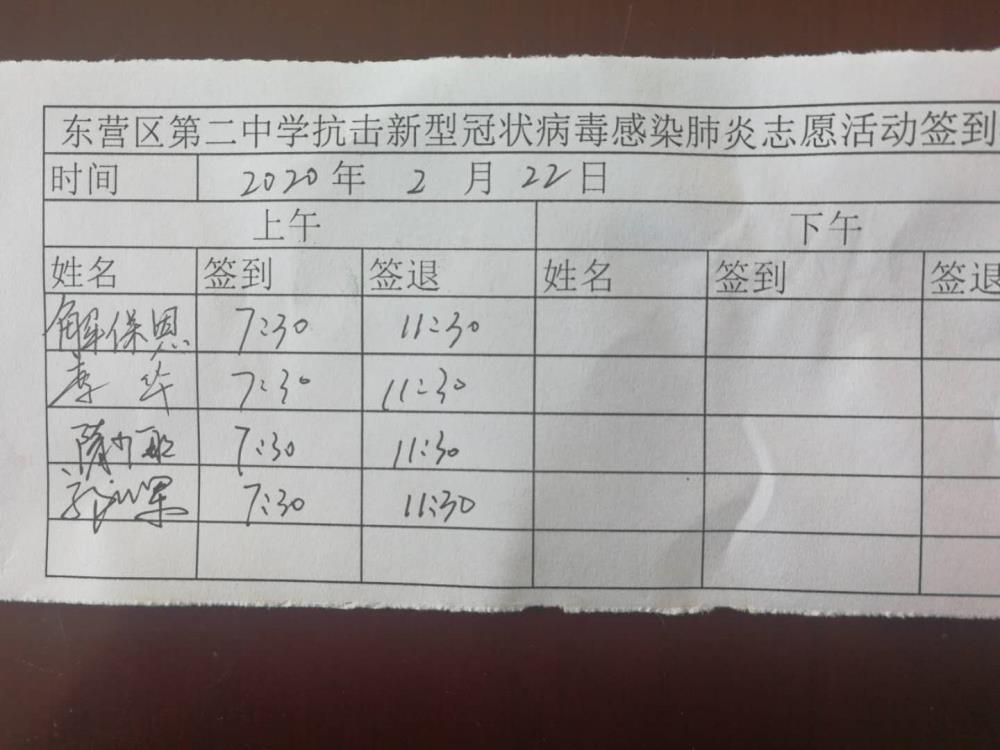 东营区第二中学抗击新型冠状病毒感染肺炎志愿活动签到
时间 2020年 2 月 22日
上午 下午
姓名 签到 签退 姓名 签到 签退
解保恩 7:30 11:30
李华 7:30 11:30
隋 7:30 11:30
7:30 11:30